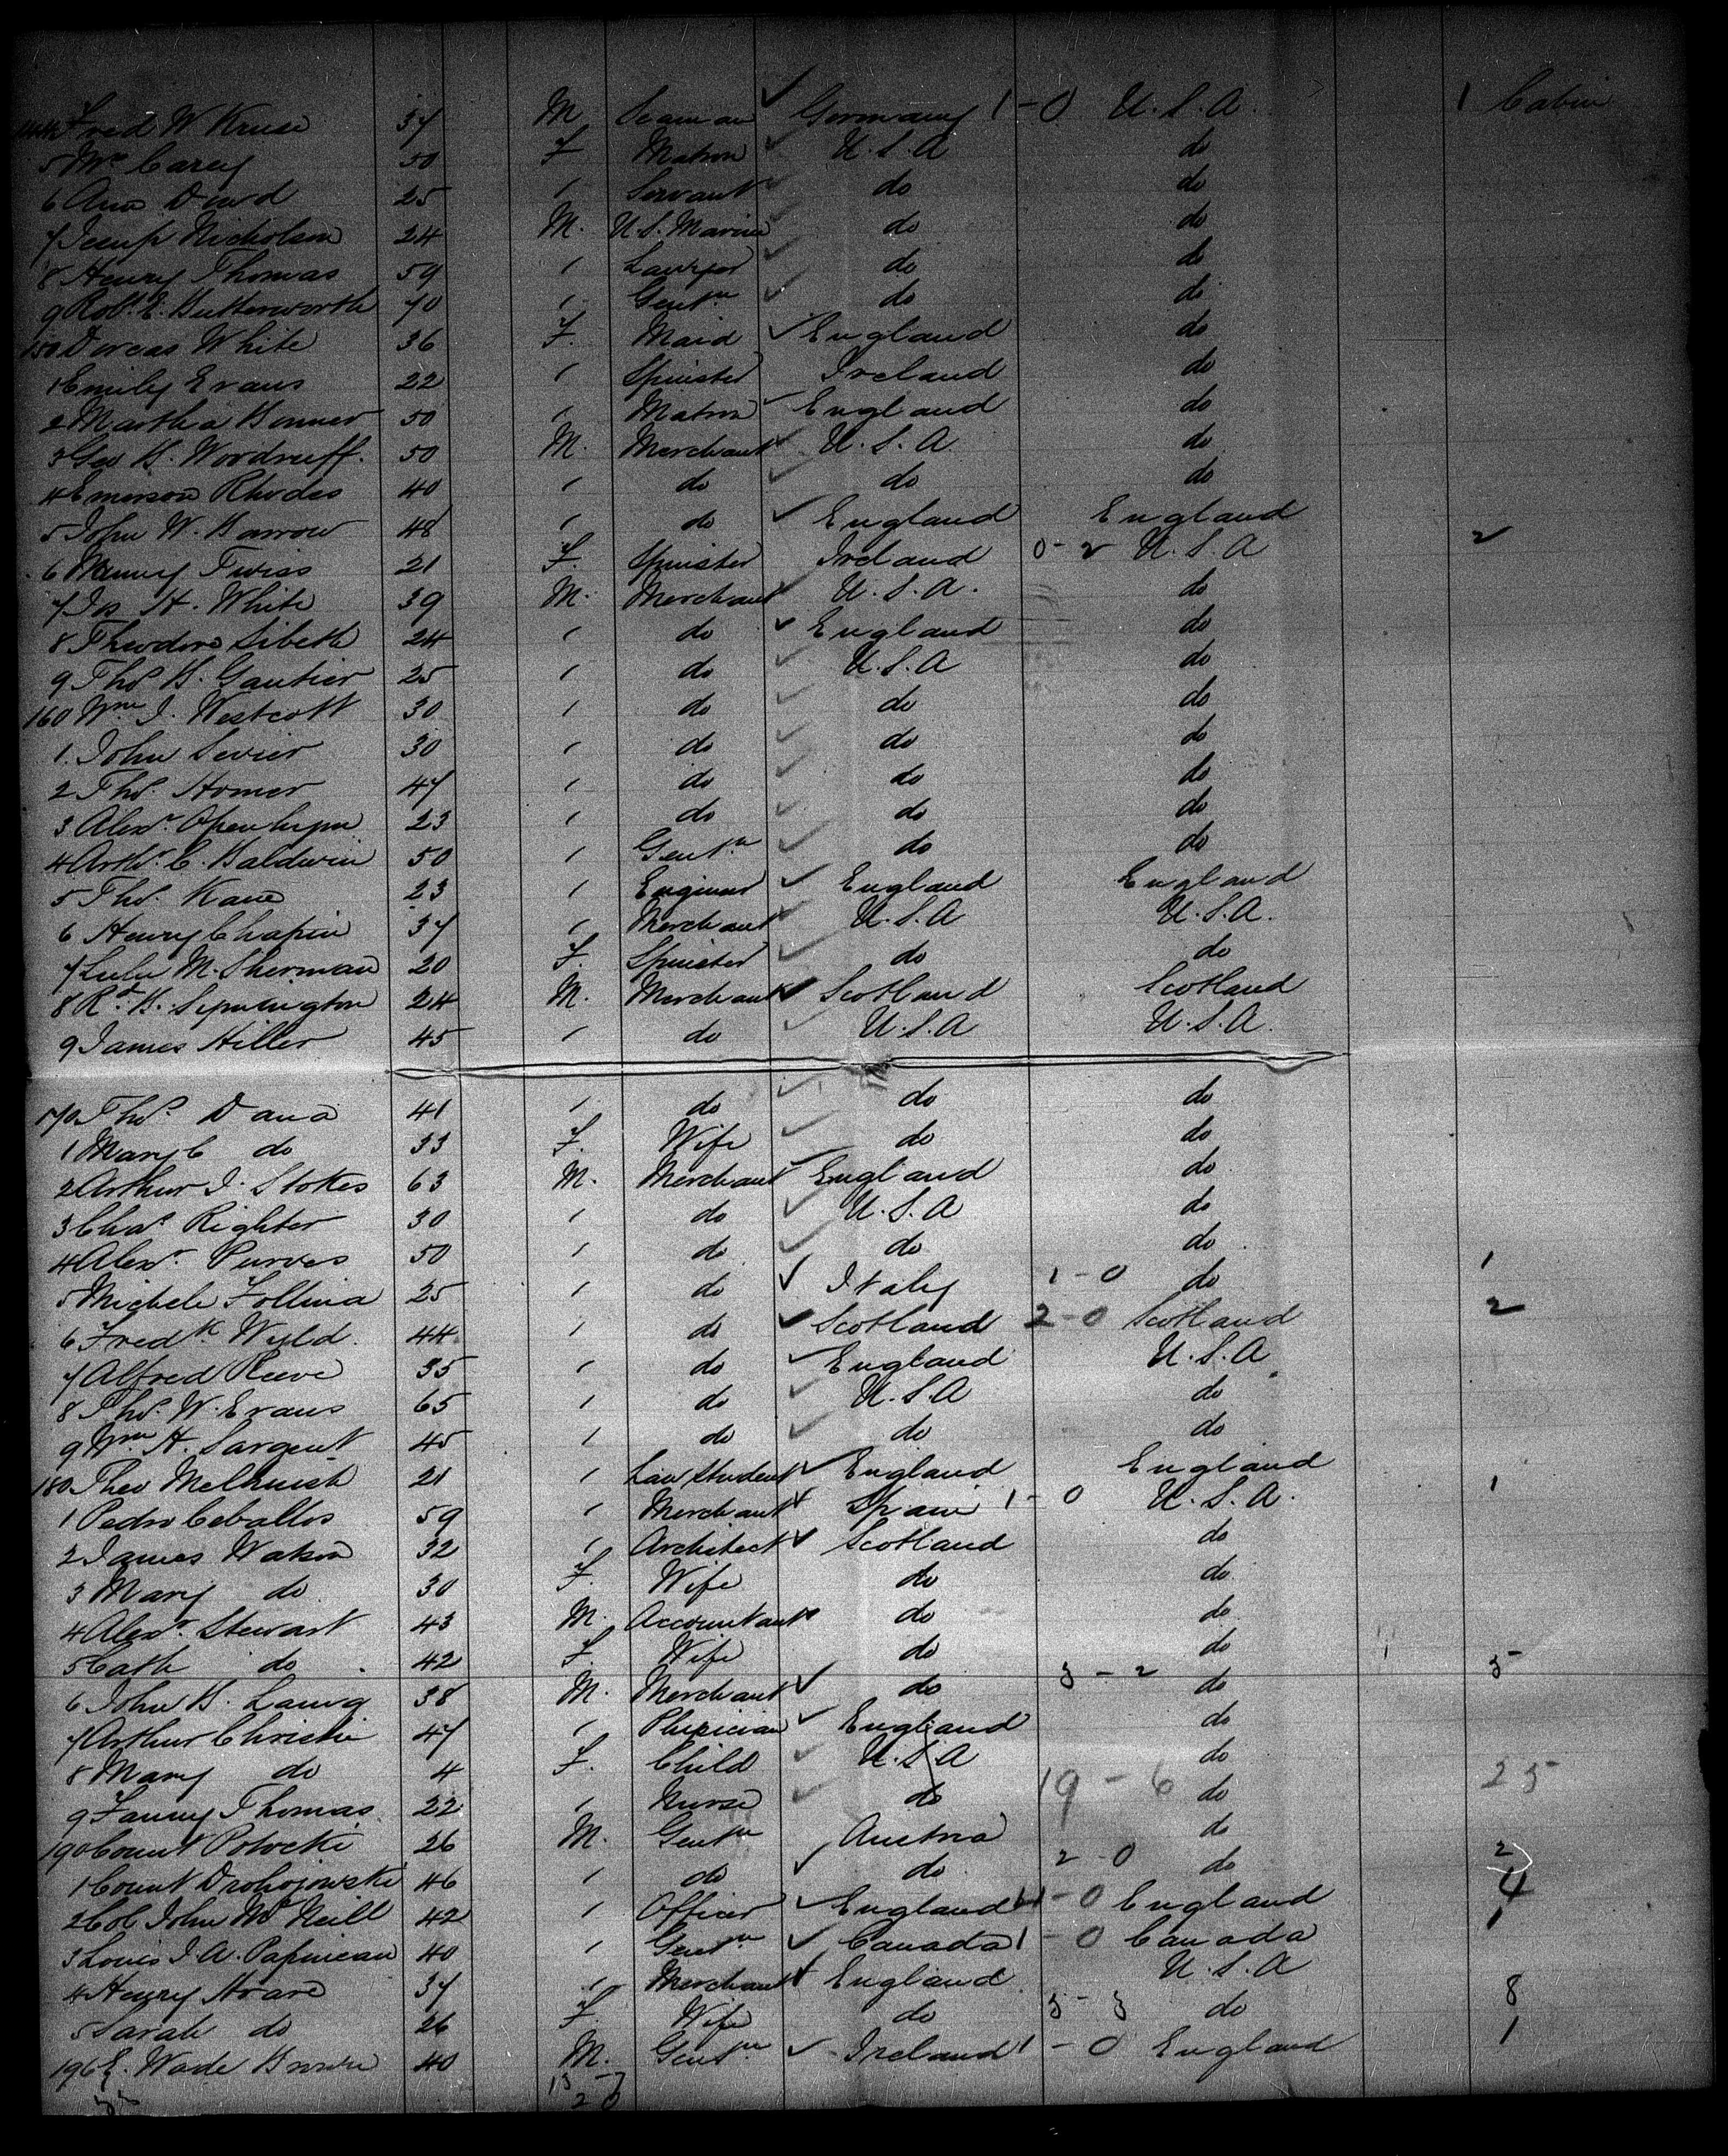 144 Fred W Kruse 37 M Seaman Germany 1-0 U.S.A 1 Cabin
5 Mrs Carey 50 F Matron U.S.A do
6 Ann 25 " Servant do do
7 Jessup Nicholson 24 M. U.S. Marine do do
8 Henry Thomas 59 " Lawyer do do
9 Robt. E. Butterworth 70 " Gentn do do
150 Dorcas White 36 F. Maid England do
1 Emily Evans 22 " Spinster Ireland do
2 Martha Bonner 50 " Matron England do
3 Geo B. Woodruff. 50 M. Merchant U.S.A. do
4 Emerson Rhodes 40 " do do do
5 John W. Barrow 48 " do England England
6 Twiss 21 F. Spinster Ireland 0-2 U.S.A 2
7 Jas H. White 39 M. Merchant U.S.A. do
8 Theodore Sibeth 24 " do England do
9 Thos B. Gautier 25 " do U.S.A do
160 Wm J. Westcott 30 " do do do
1. John Sevier 30 " do do do
2 Thos. Homer 47 " do do do
3 Alexr. 23 " do do do
4 Arthr. C. Baldwin 50 " Gentn do do
5 Thos. Kane 23 " Engineer England England
6 Henry Chapin 37 " Merchant U.S.A U.S.A.
7 Lulu M. Sherman 20 F. Spinster do do
8 Rd. B. 24 M. Merchant Scotland Scotland
9 James Hiller 45 " do U.S.A U.S.A.
170 Thos Dana 41 " do do do
1 Mary C do 33 F. Wife do do
2 Arthur J. Stokes 63 M. Merchant England do
3 Chas Righter 30 " do U.S.A do
4 Alexr. Purves 50 " do do do 1
5 Michele Follina 25 " do Italy 1-0 do
6 Fredk Wyld. 44 " do Scotland 2-0 Scotland 2
7 Alfred Reeve 35 " do England U.S.A
8 Thos. W. Evans 65 " do U.S.A do
9 Wm H. Sargent 45 " do do do
180 Theo Melhuish 21 " Law Student England England
1 Pedro Ceballos 59 " Merchant Spain 1-0 U.S.A. 1
2 James Watson 32 " Architect Scotland do
3 Mary do 30 F. Wife do do
4 Alexr. Stewart 43 M. Accountant do do
5 Cath do 42 F. Wife do do
6 John B. Laing 38 M. Merchant do 3-2 do 5
7 Arthur Christie 47 " Physician England do
8 Mary do 4 F. Child U.S.A do
9 Fanny Thomas 22 " Nurse do 19-6 do 25
190 Count Potocki 26 M. Gentn Austria do
1 Count Drohojowski 46 " do do 2-0 do 2
2 Col John McNeill 42 " Officer England 4-0 England 4
3 Louis J. A. Papineau 40 " Gentn Canada 1-0 Canada 1
4 Henry 37 " Merchant England U.S.A
5 Sarah do 26 F. Wife do 5-3 do 8
196 E. Wade Browne 40 M. Gentn Ireland 1-0 England 1
13 - 7